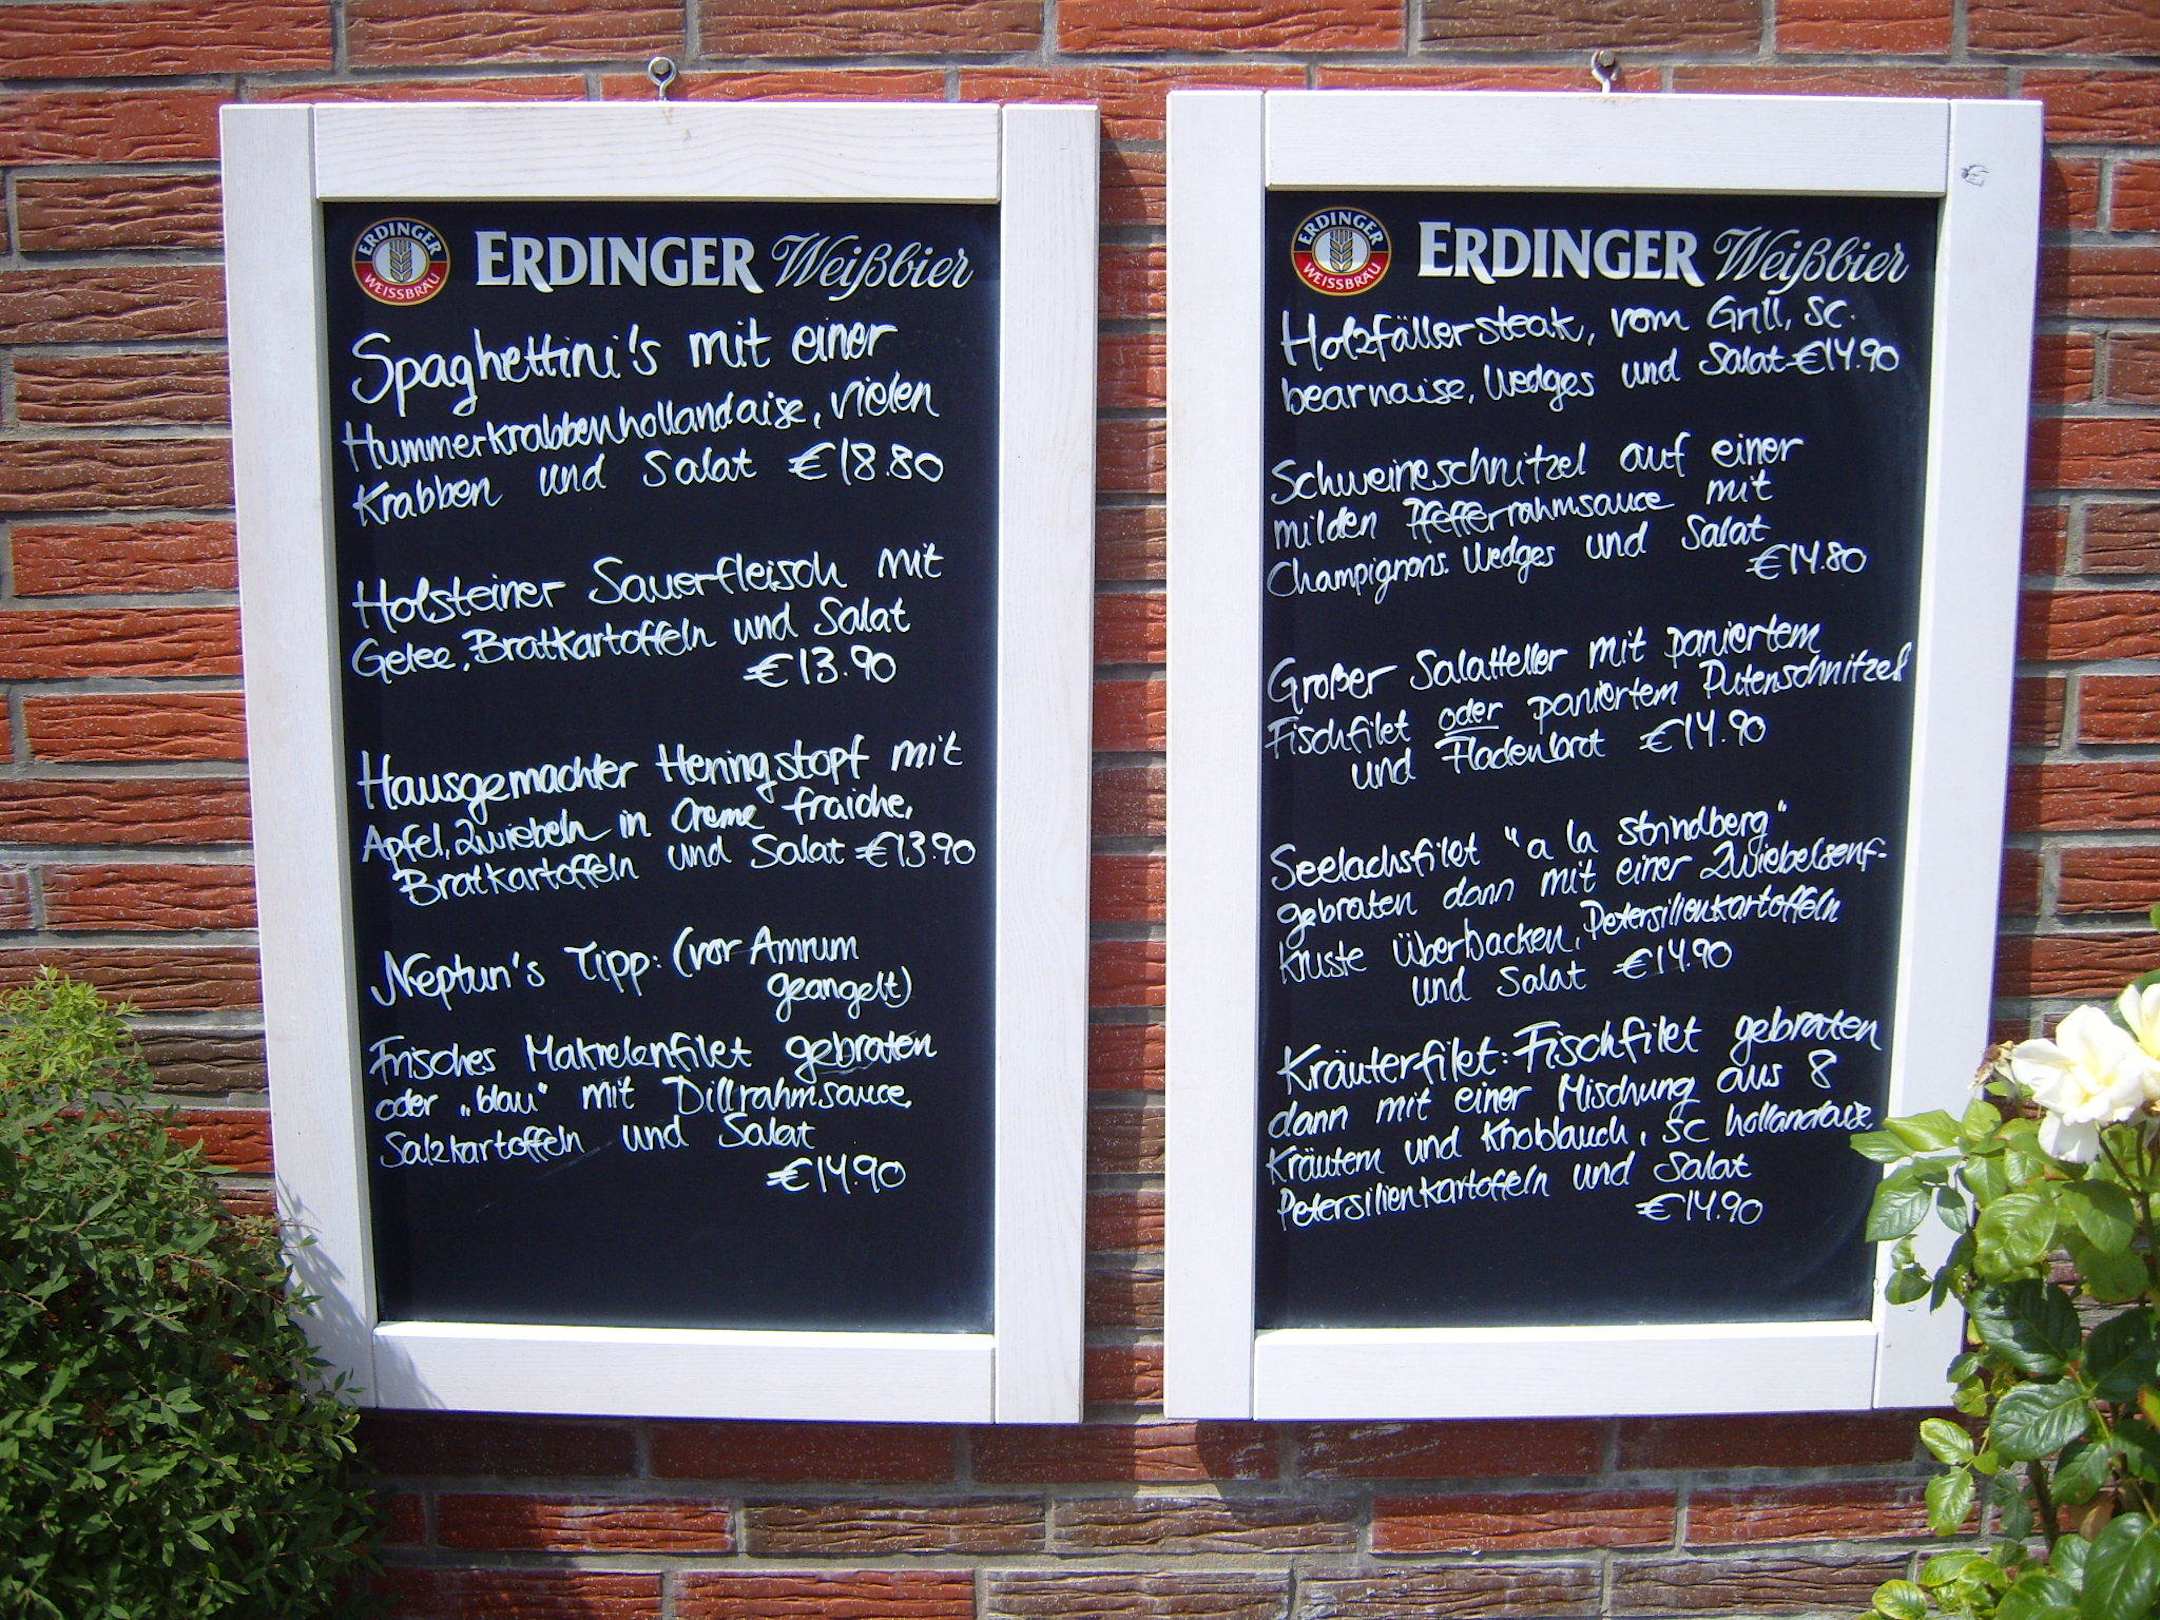 ERDINGER WEISSBRÄU ERDINGER Weißbier
Spaghettini's mit einer
Hummerkrabbenhollandaise, vielen
Krabben und Salat €18.80
Holsteiner Sauerfleisch mit
Gelee, Bratkartoffeln und Salat
€13.90
Hausgemachter Heringstopf mit
Apfel, Zwiebeln in Creme fraiche,
Bratkartoffeln und Salat €13.90
Neptun's Tipp: (vor Amrum
geangelt)
Frisches Makrelenfilet gebraten
oder „blau" mit Dillrahmsauce,
Salzkartoffeln und Salat
€14.90
ERDINGER WEISSBRÄU ERDINGER Weißbier
Holzfällersteak, vom Grill, Sc.
bearnaise, Wedges und Salat €14.90
Schweineschnitzel auf einer
milden Pfefferrahmsauce mit
Champignons. Wedges und Salat
€14.80
Großer Salatteller mit paniertem
Fischfilet oder paniertem Putenschnitzel
und Fladenbrot €14.90
Seelachsfilet "a la Strindberg"
gebraten dann mit einer Zwiebelsenf-
kruste überbacken, Petersilienkartoffeln
und Salat €14.90
Kräuterfilet: Fischfilet gebraten
dann mit einer Mischung aus 8
Kräutern und Knoblauch, Sc hollandaise,
Petersilienkartoffeln und Salat
€14.90